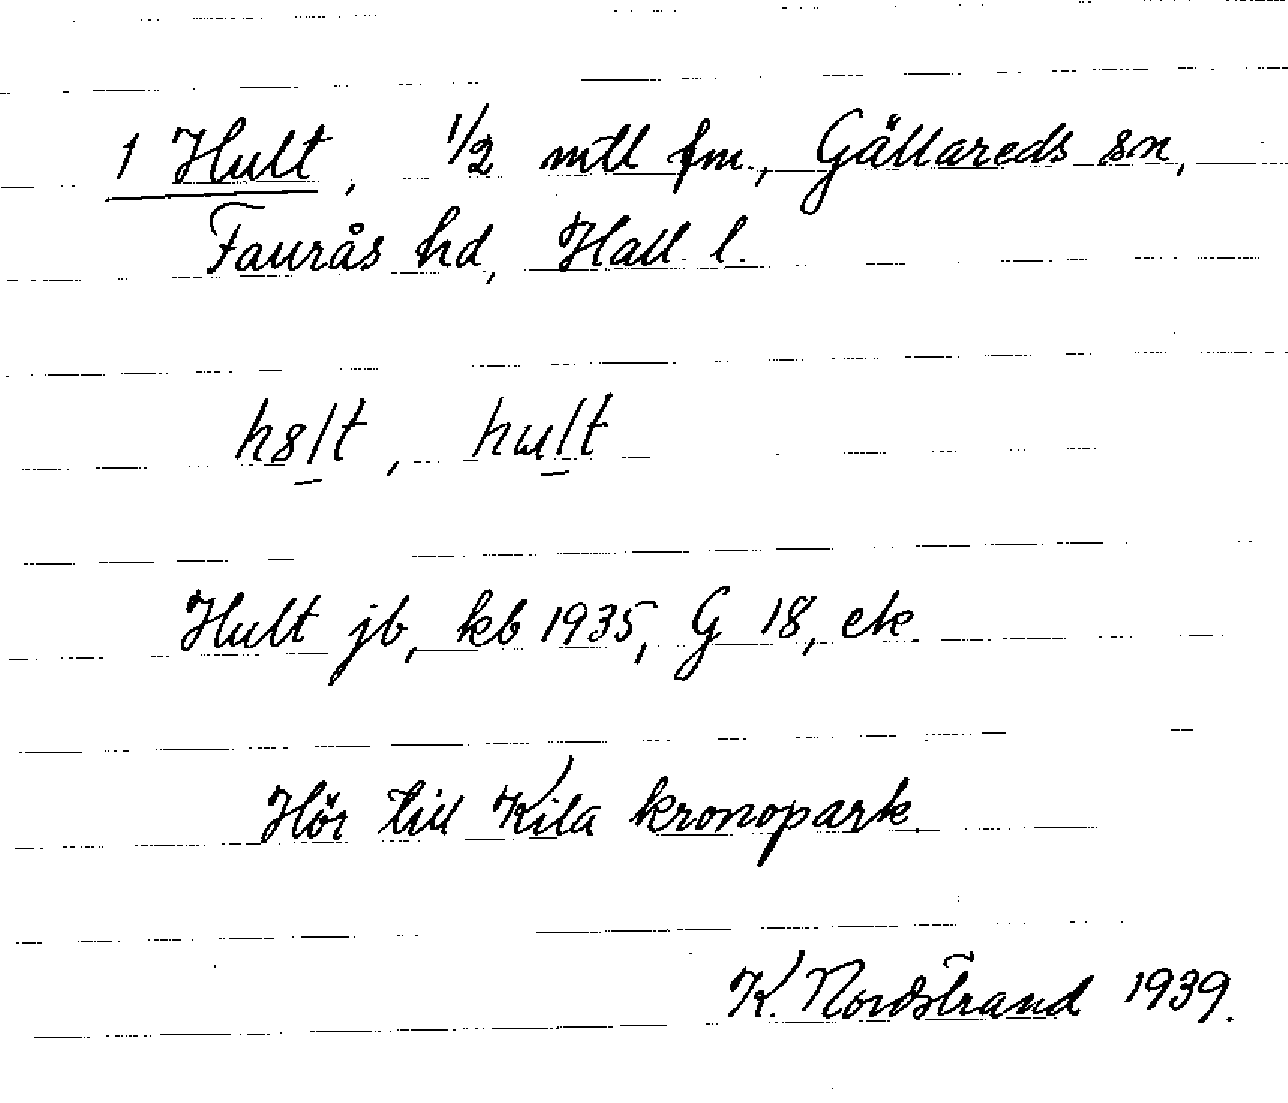 1 Hult, 1/2 mtl fm., Gällareds sn,
Faurås hd, Hall. l.
h8l̲t, hul̲t
Hult jb, kb 1935, G 18, ek.
Hör till Kila kronopark.
K. Nordstrand 1939.